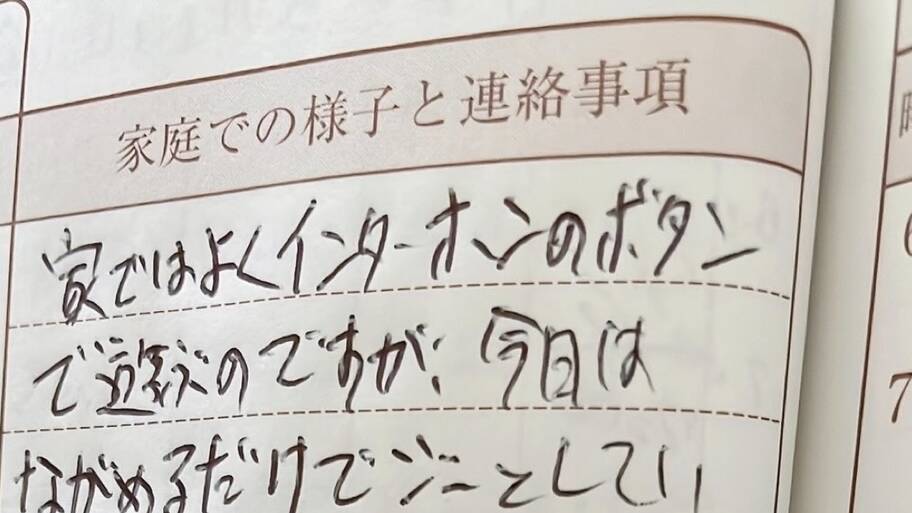 家庭での様子と連絡事項
家ではよくインターホンのボタン
で遊ぶのですが、今日は
ながめるだけでジーとしてい
7